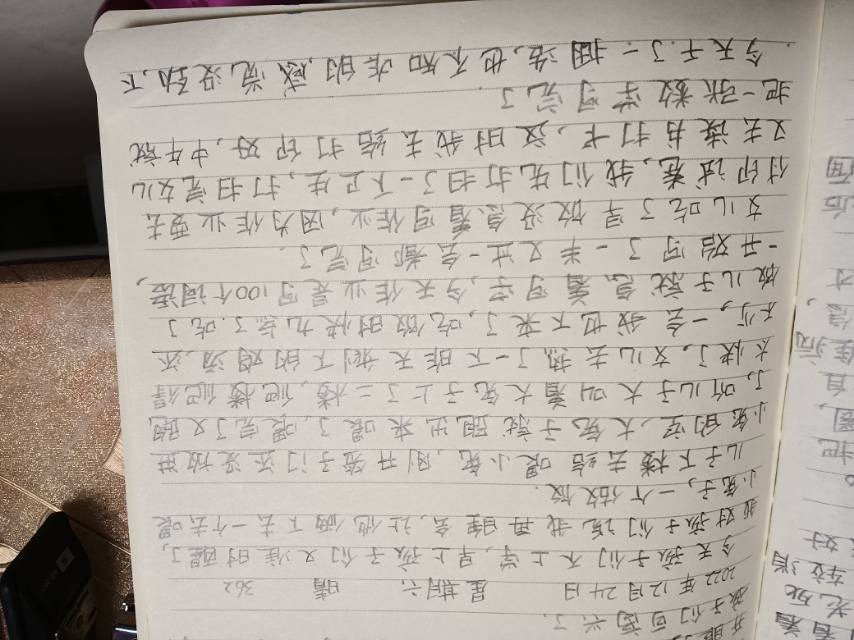 孩子们可高兴了.
2022年12月24日 星期六 晴 362
今天孩子们不上学,早上孩子们又准时醒了,
我对孩子们说我再睡会,让他俩下去一个去喂
小兔子,一个做饭.
儿子下楼去给喂小兔,刚开笼子门还没放进
小兔的窝,大兔子就跑出来喂了,喂完了又跑
了,听儿子大叫着大兔子上了二楼,爬楼爬得
太快了,女儿去热了一下昨天剩下的鸡汤,还
不,一会我也下来了,吃饭时快九点了.吃了
饭儿子就急着写字,今天作业是写100个词语,
一开始写了一半又过一会都写完了.
女儿吃了早饭没急着写作业,因为作业要去
付印试卷,我们先打扫了一下卫生,打扫完女儿
又去读书打卡,这时我去给打印好,中午就
把一张数学写完了.
今天干了一,也不知咋的,感觉没劲,下